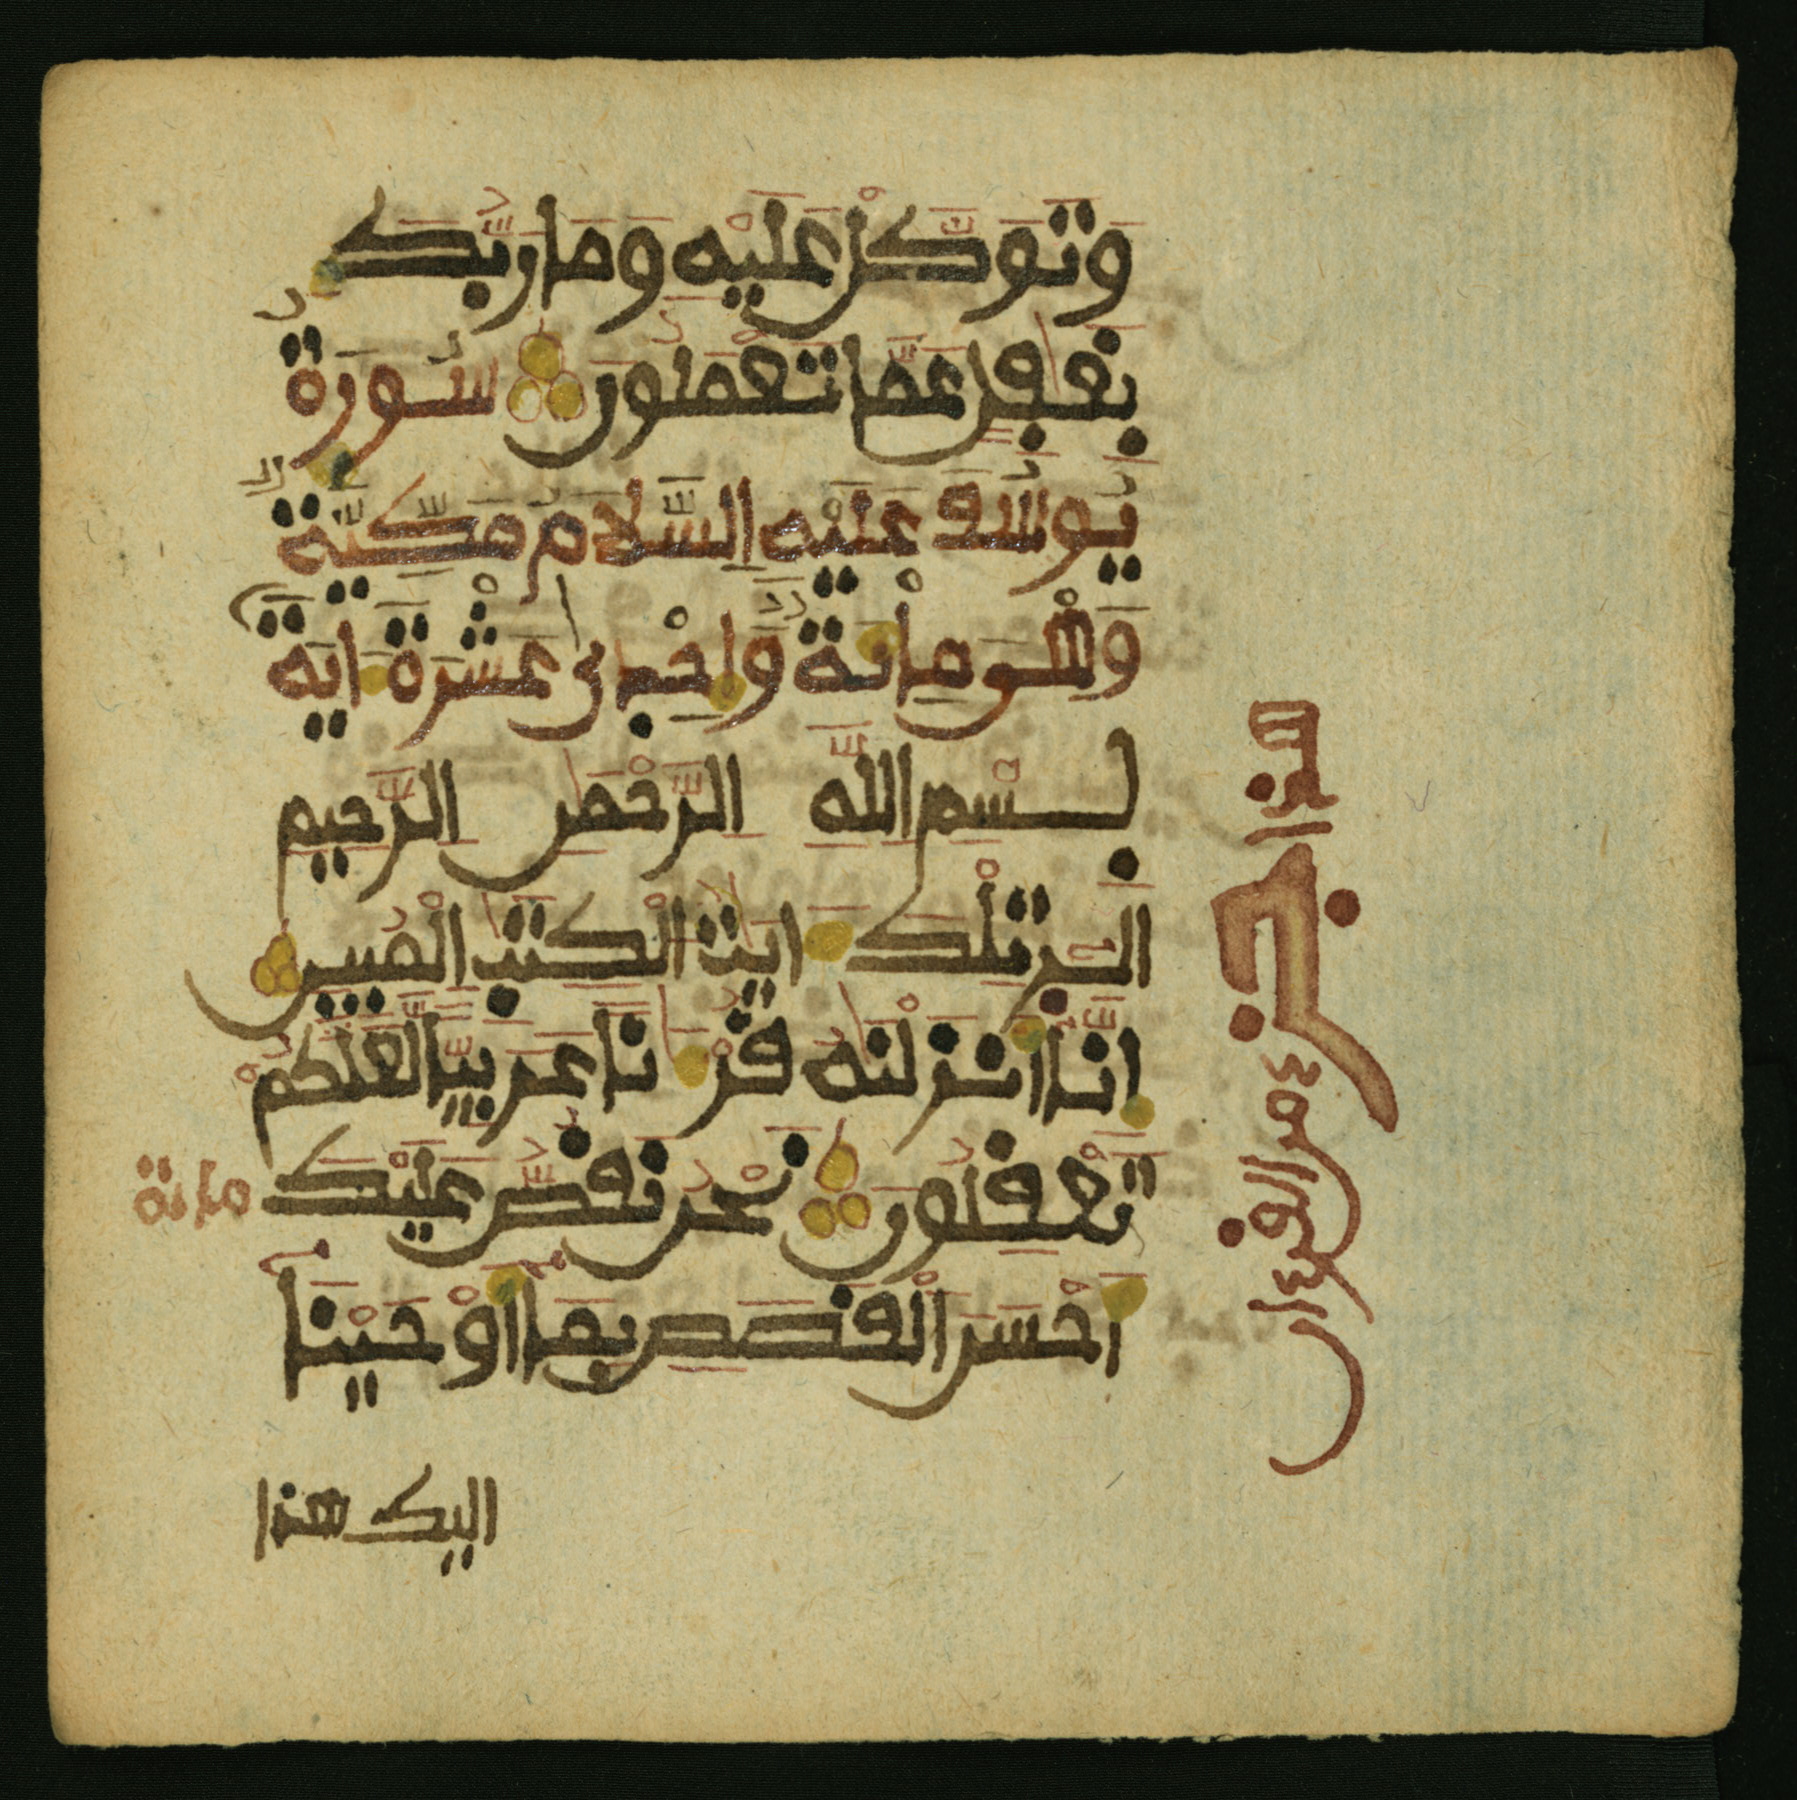 وَتَوَكَّلْ عَلَيْهِ وَمَا رَبُّكَ
بِغَٰفِلٍ عَمَّا تَعْمَلُونَ سُورَةُ
يُوسُفَ عَلَيْهِ اِلسَّلَامُ مَكِّيَّةٌ
وَهْوَ مِائَةٌ وَإِحْدَىٰ عَشْرَةَ ايَةً
بِسْمِ اللَّهِ الرَّحْمَٰنِ الرَّحِيمِ
الَر تِلْكَ ءَايَٰتُ الْكِتَٰبِ الْمُبِينِ
إِنَّا أَنزَلْنَٰهُ قُرْءَٰنًا عَرَبِيًّا لَّعَلَّكُمْ
تَعْقِلُونَ نَحْنُ نَقُصُّ عَلَيْكَ
مائة
أَحْسَنَ الْقَصَصِ بِمَا أَوْحَيْنَا
اليك هذا
هذا جزء من القرءان